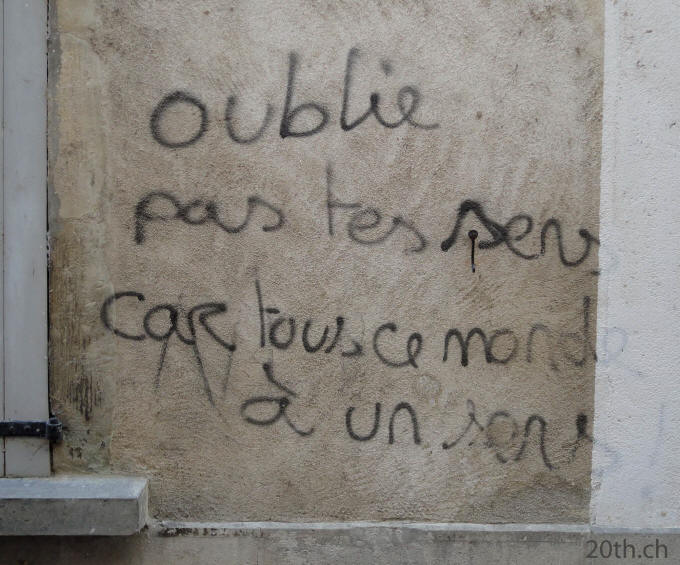 oublie
pas tes sens
car tous ce monde
à un sens !
20th.ch